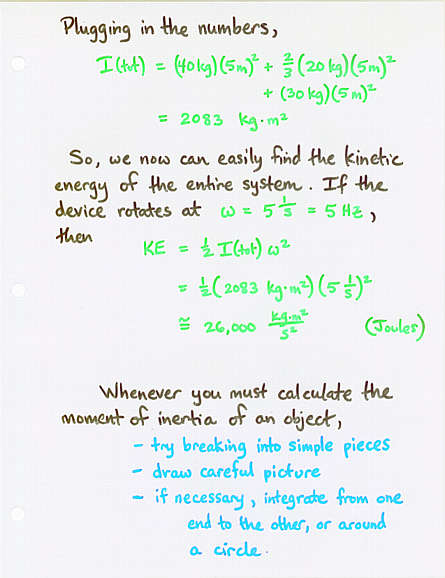 Plugging in the numbers,
I(tot) = (40 kg)(5m)² + ⅔(20 kg)(5m)²
+ (30 kg)(5m)²
= 2083 kg·m²
So, we now can easily find the kinetic
energy of the entire system. If the
device rotates at ω = 5 1/s = 5 Hz,
then
KE = ½ I(tot) ω²
= ½(2083 kg·m²)(5 1/s)²
≅ 26,000 kg·m²/s² (Joules)
Whenever you must calculate the
moment of inertia of an object,
- try breaking into simple pieces
- draw careful picture
- if necessary, integrate from one
end to the other, or around
a circle.